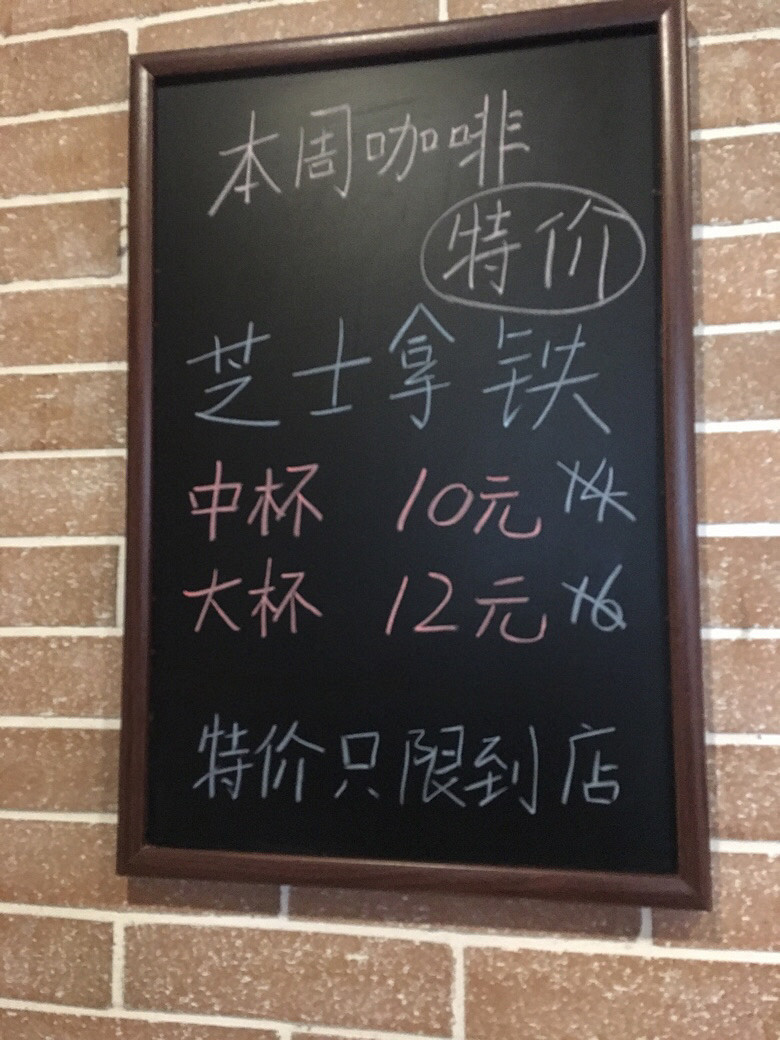 本周咖啡
特价
芝士拿铁
中杯 10元 14
大杯 12元 16
特价只限到店